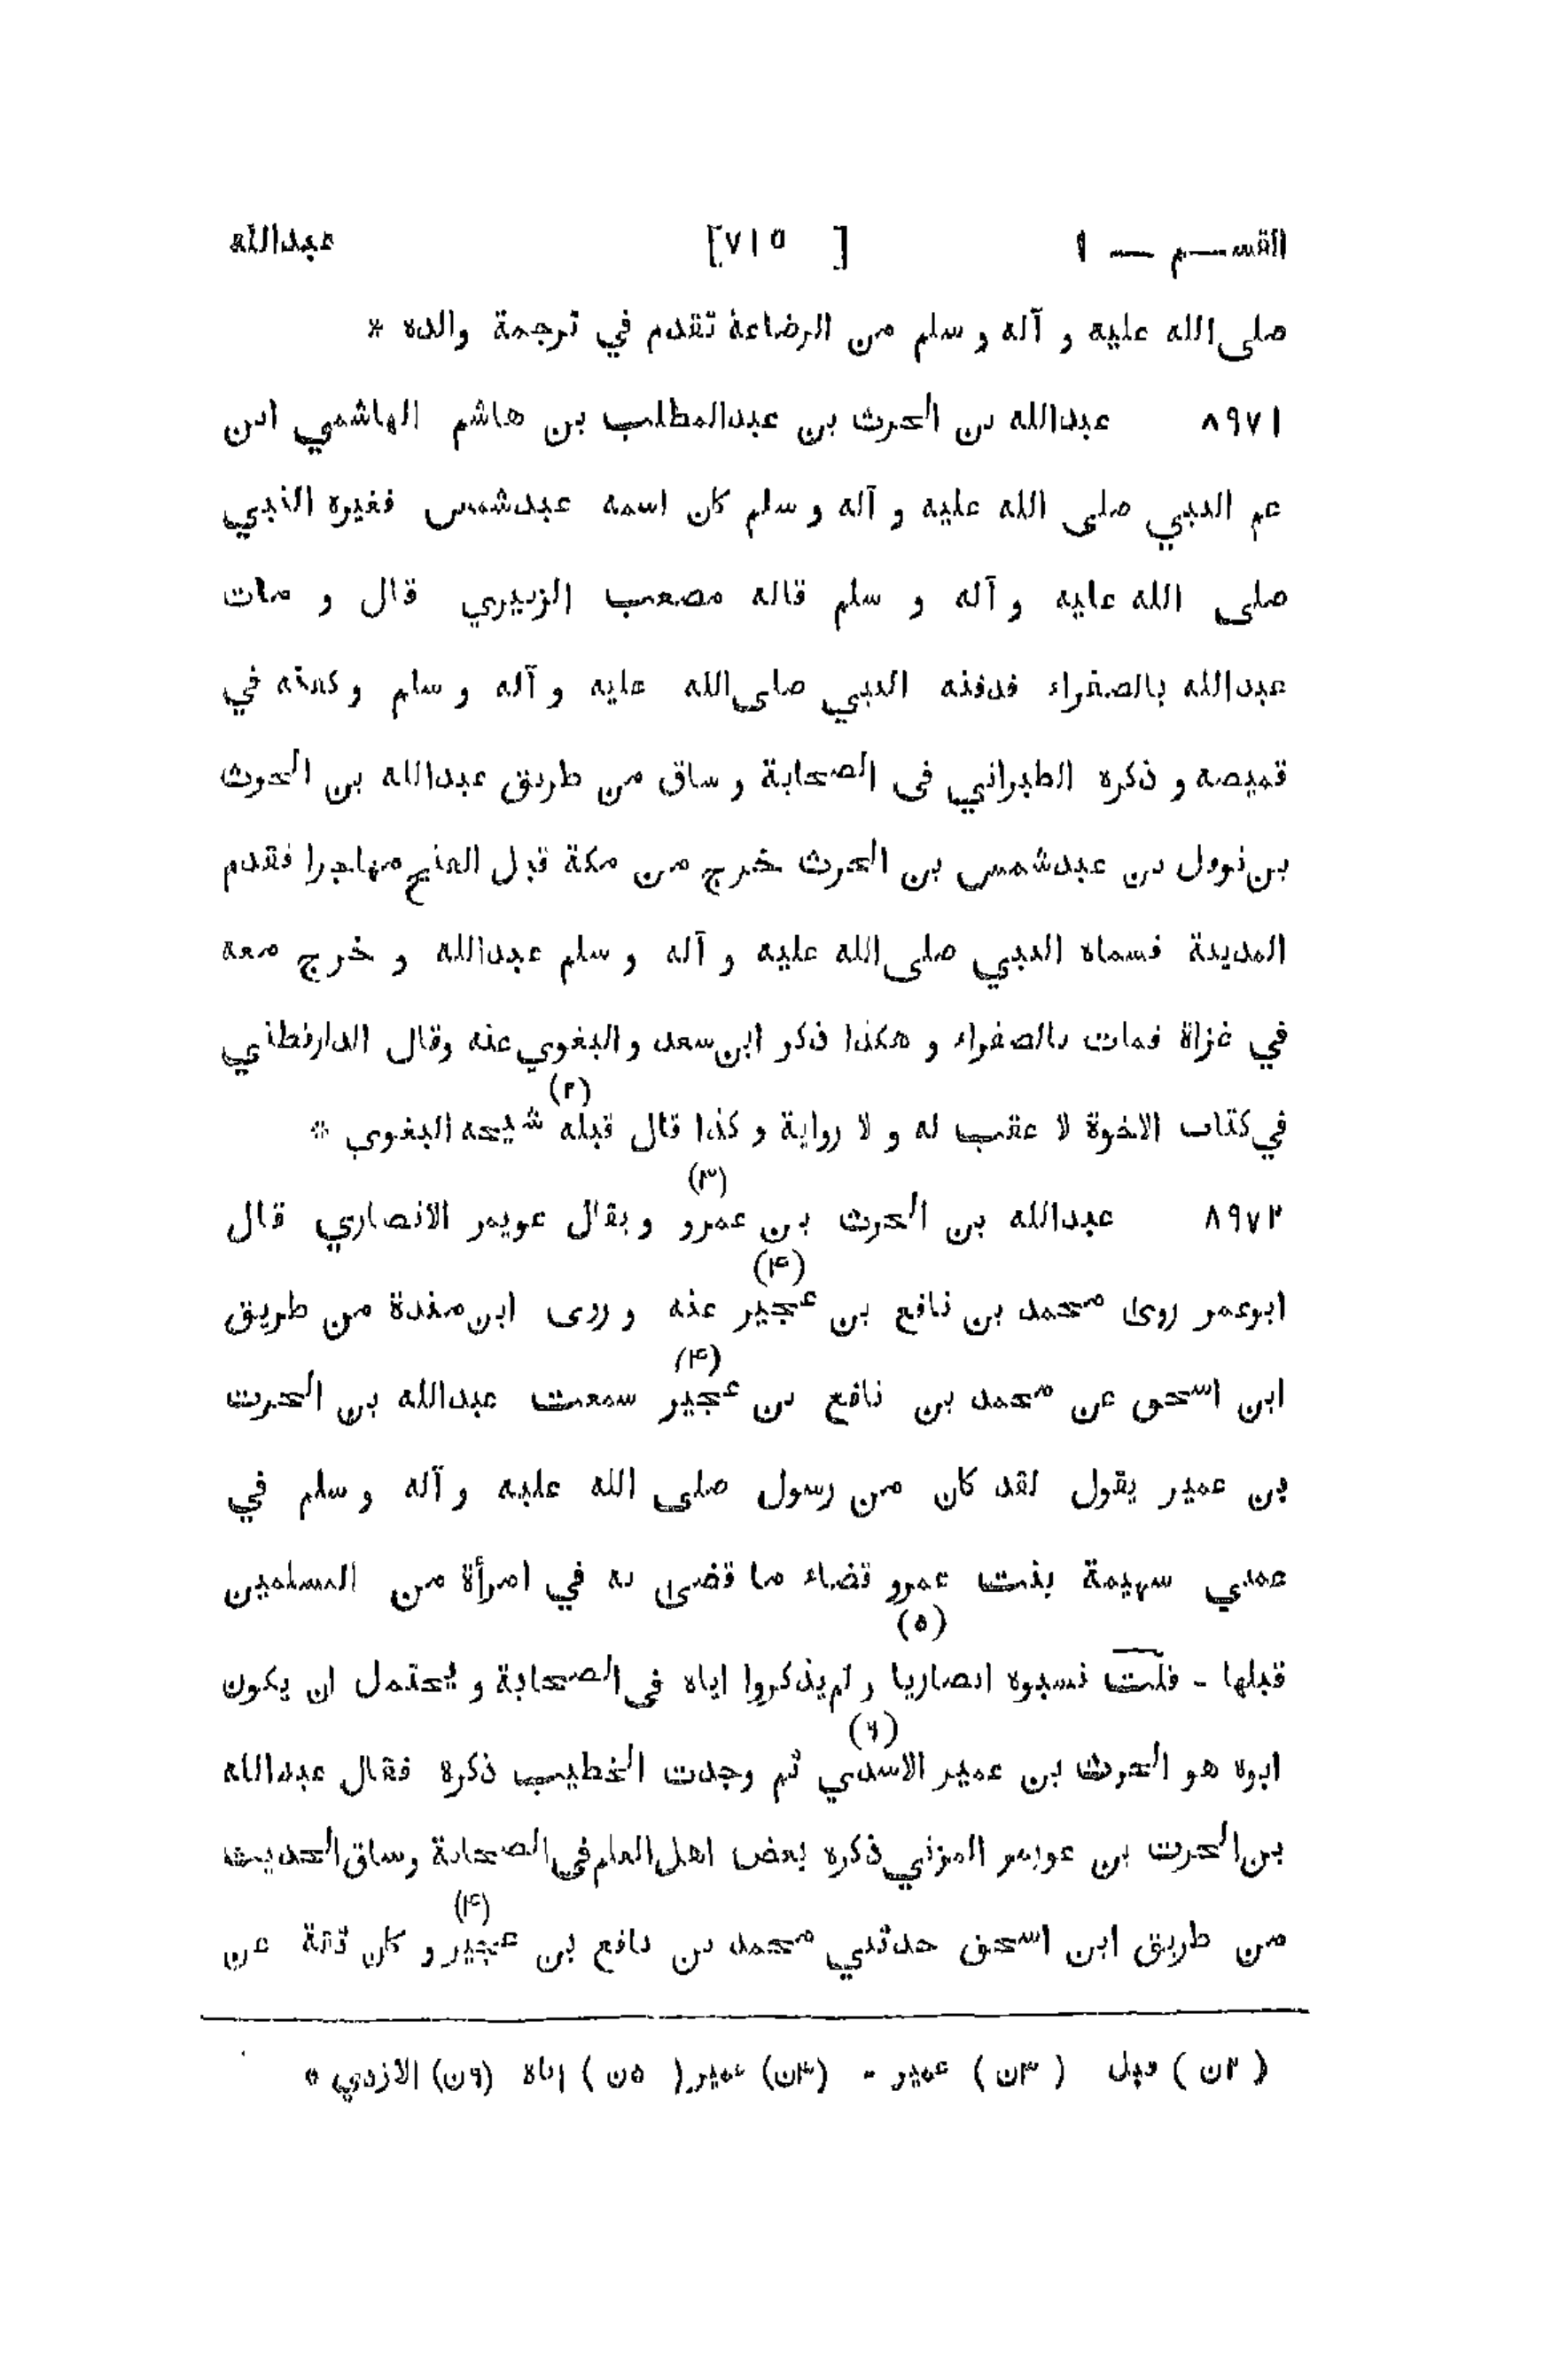 القسم — ١ [ ٧١٥ ] عبدالله
صلى الله عليه و آله و سلم من الرضاعة تقدم في ترجمة والده *
٨٩٧١ عبدالله بن الحرث بن عبدالمطلب بن هاشم الهاشمي ابن
عم النبي صلى الله عليه و آله و سلم كان اسمه عبدشمس فغيره النبي
صلى الله عليه و آله و سلم قاله مصعب الزبيري قال و مات
عبدالله بالصفراء فدفنه النبي صلى الله عليه و آله و سلم و كفنه في
قميصه و ذكره الطبراني فى الصحابة و ساق من طريق عبدالله بن الحرث
بن نوفل بن عبدشمس بن الحرث خرج من مكة قبل الفتح مهاجرا فقدم
المدينة فسماه النبي صلى الله عليه و آله و سلم عبدالله و خرج معه
في غزاة فمات بالصفراء و هكذا ذكر ابن سعد و البغوي عنه وقال الدارقطني
في كتاب الاخوة لا عقب له و لا رواية و كذا قال قبله (٢) شيخه البغوي *
٨٩٧٢ عبدالله بن الحرث بن عمرو (٣) و يقال عويمر الانصاري قال
ابوعمر روى محمد بن نافع بن عجير (۴) عنه و روى ابن مندة من طريق
ابن اسحق عن محمد بن نافع بن عجير (۴) سمعت عبدالله بن الحرث
بن عمير يقول لقد كان من رسول صلى الله عليه و آله و سلم في
عمتي سهيمة بنت عمرو قضاء ما قضى به في امرأة من المسلمين
قبلها - قلت نسبوه انصاريا و لم يذكروا اياه (٥) فى الصحابة و يحتمل ان يكون
ابوه هو الحرث بن عمير الاسدي (٦) ثم وجدت الخطيب ذكره فقال عبدالله
بن الحرث بن عويمر المزني ذكره بعض اهل العلم فى الصحابة و ساق الحديث
من طريق ابن اسحق حدثني محمد بن نافع بن عجير (۴) و كان ثقة عن
( ٢ن ) قيل ( ٣ن ) عمير - (۴ن) عمير ( ٥ن ) اباه (٦ن) الازدي *